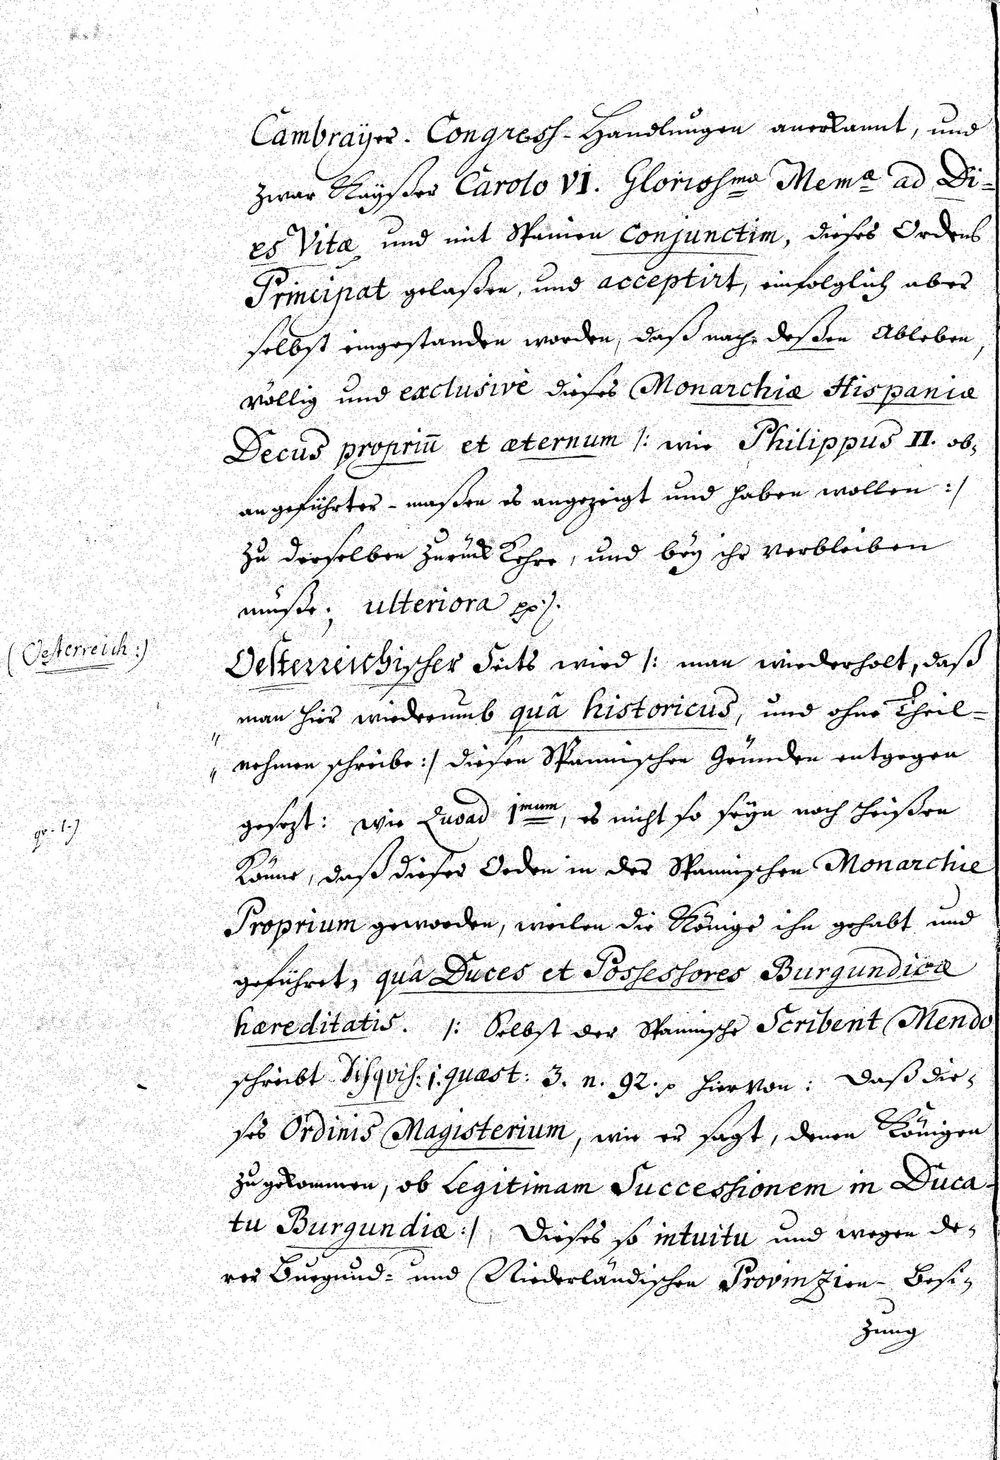 Cambraÿer-Congress-Handlungen anerkannt, und
zwar Kaÿßer Carolo VI. Gloriosma Mema ad Di=
es Vitæ, und mit Spanien conjunctim, dieses Ordens
Principat gelaßen, und acceptirt, einfolglich aber
selbst eingestanden worden, daß nach deßen Ableben,
völlig und exclusivè dieses Monarchiæ Hispaniæ
Decus propriū et æternum /: wie Philippus II. ob,
angeführter-maßen es angezeigt und haben wollen :/
zu derselben zurück Kehre, und beÿ ihr verbleiben
müße; ulteriora pp:/.
(Oesterreich:)
Oesterreichischer Seits wird /: man wiederholt, daß
man hier wiederumb quâ historicus, und ohne Theil=
" nehmen schreibe :/ diesen Spannischen Gründen entgegen
gesezt: wie Quoad 1mum, es nicht so seÿn noch heißen
Könne, daß dieser Orden in der Spannischen Monarchie
Proprium geworden, weilen die Könige ihn gehabt und
geführet, quâ Duces et Possessores Burgundicæ
hæreditatis. /: Selbst der Spannische Scribent Mendo
schreibt Disqvis: 1. quæst: 3. n. 92. hiervon: Daß die,
ses Ordinis Magisterium, wie er sagt, denen Königen
zugekommen, ob Legitimam Successionem in Duca-
tu Burgundiæ :/ Dieses so intuitu und wegen de,
rer Burgund= und Niederländischen Provinzien-Besi,
zung